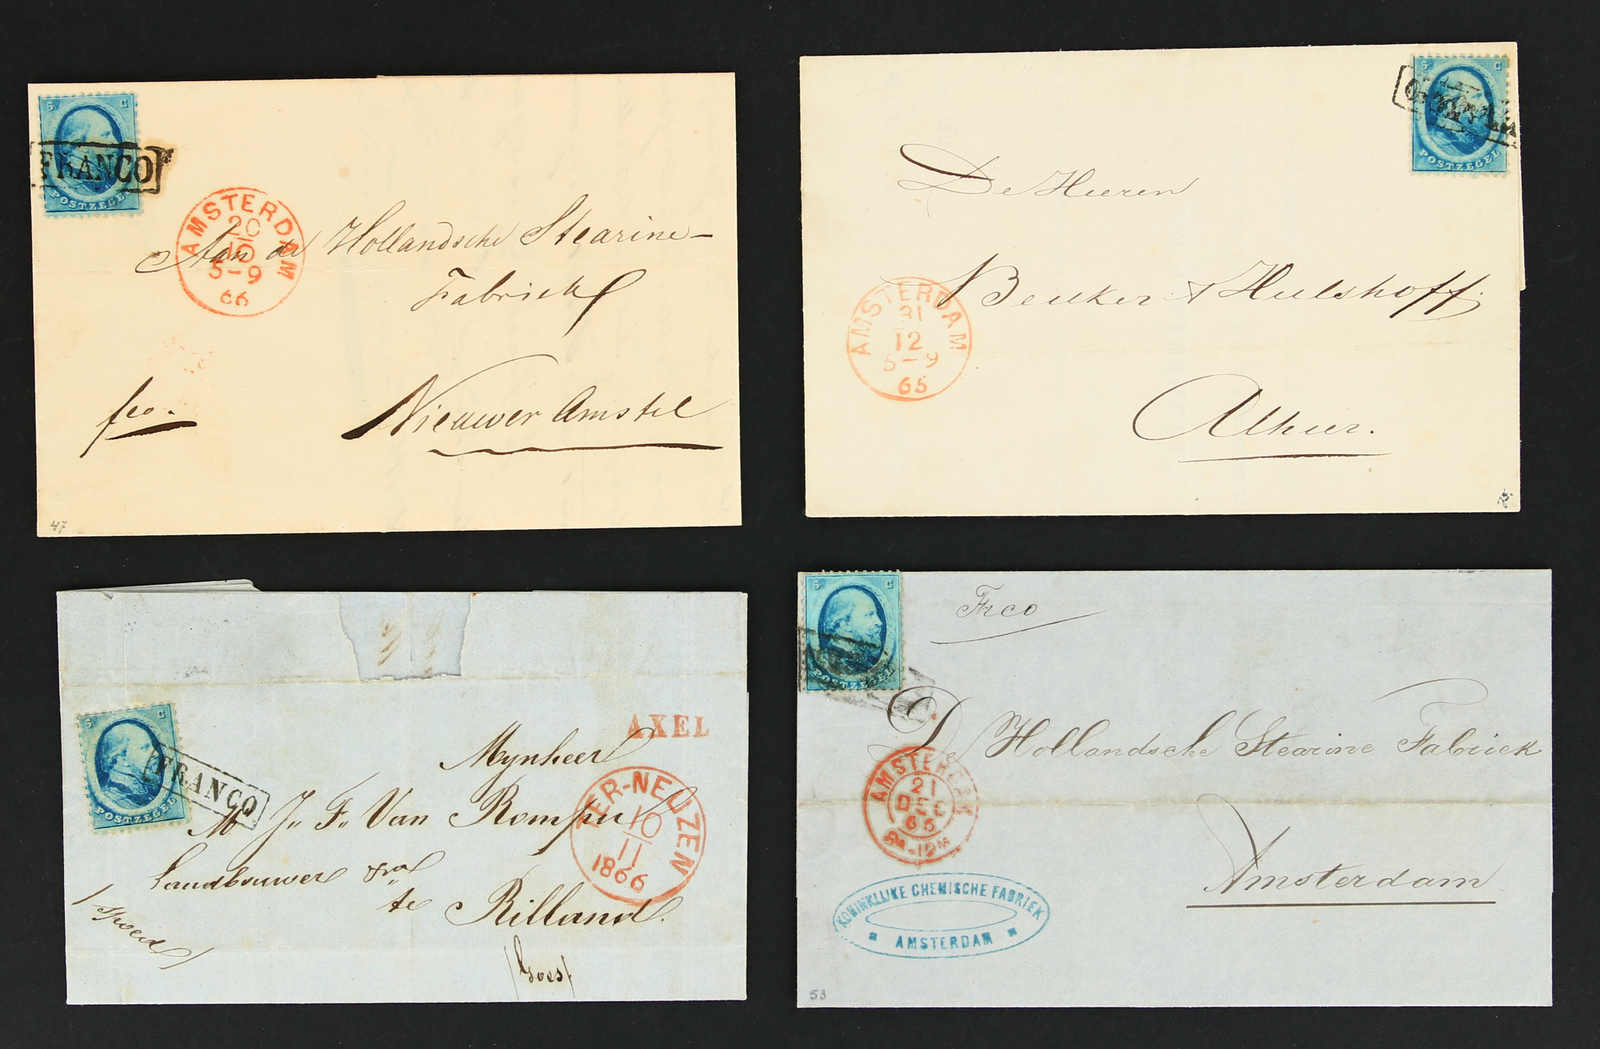 5 C
FRANCO
POSTZEGEL
AMSTERDAM
20
10
5-9
66
Aan de Hollandsche Stearine-
Fabriek
fco.
Nieuwer Amstel
47
5 C
POSTZEGEL
De Heeren
Beuker & Hulshoff
AMSTERDAM
31
12
5-9
65
Alhier.
5 C
FRANCO
POSTZEGEL
AXEL
Mynheer
J. F. Van Rompu
Landbouwer
te Rilland.
TER-NEUZEN
10
11
1866
Spoed
Goes
5 C
POSTZEGEL
Frco
De Hollandsche Stearine Fabriek
AMSTERDAM
21
DEC
65
8M-12M
Amsterdam
KONINKLIJKE CHEMISCHE FABRIEK
AMSTERDAM
53